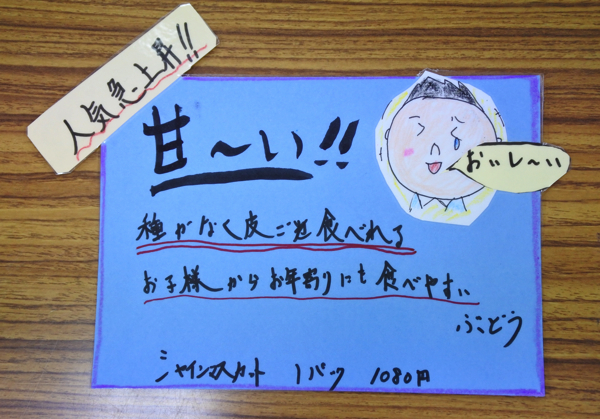 人気急上昇!!
甘〜い!!
おいし〜い
種がなく皮ごと食べれる
お子様からお年寄りにも食べやすい
ぶどう
シャインマスカット 1パック 1080円